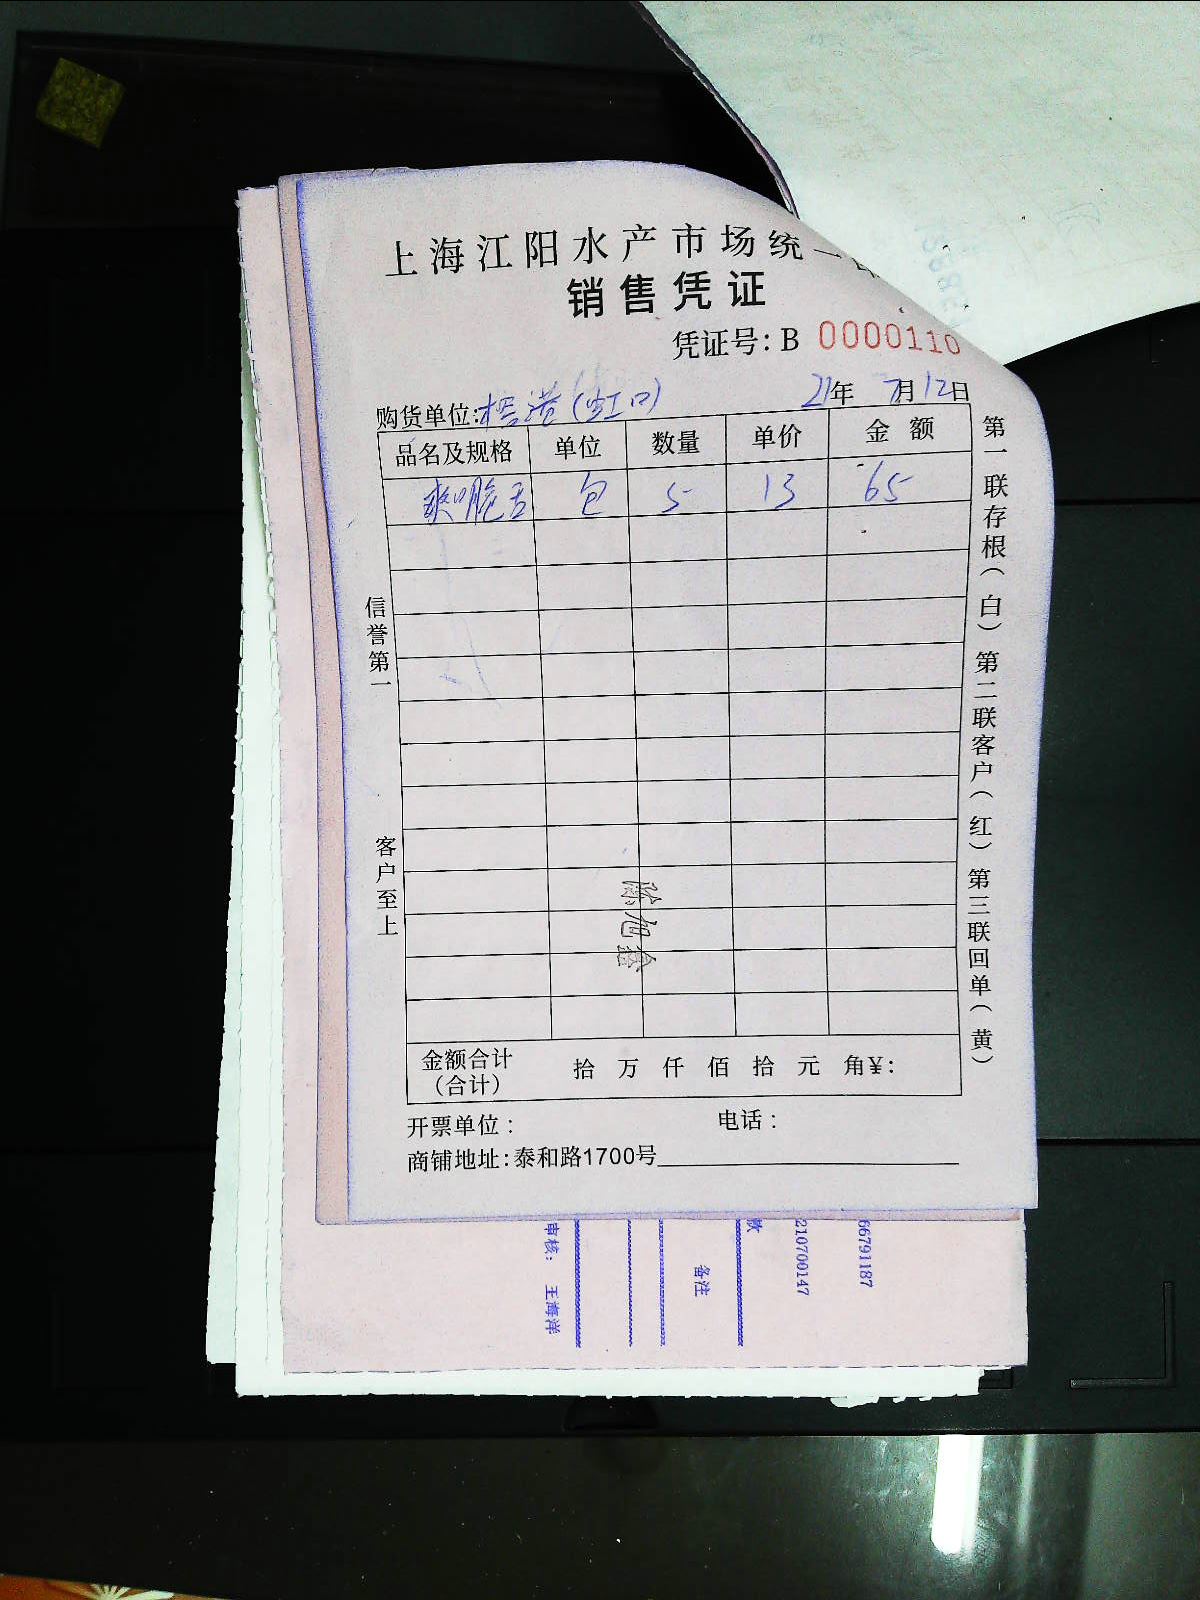 上海江阳水产市场统一
销售凭证
凭证号:B 0000110
购货单位: 港(虹口) 21年 7月12日
品名及规格 单位 数量 单价 金额
爽口脆舌 包 5 13 65
信誉第一
客户至上
陈旭鑫
金额合计 拾 万 仟 佰 拾 元 角¥:
(合计)
开票单位: 电话:
商铺地址:泰和路1700号
第一联存根(白) 第二联客户(红) 第三联回单(黄)
审核: 王海洋
备注
款
210700147
66791187